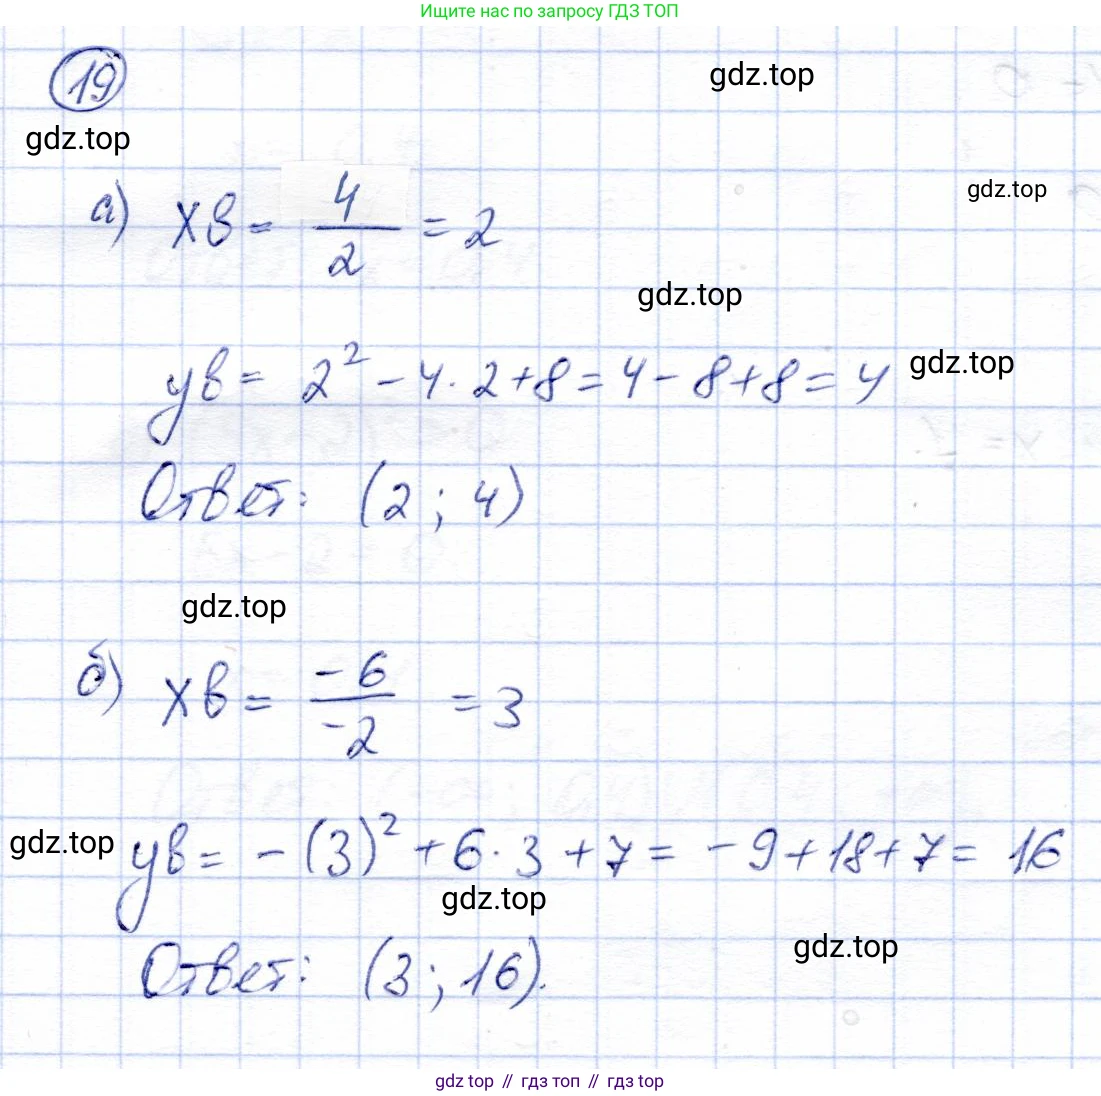 Ищите нас по запросу ГДЗ ТОП
19
gdz.top
gdz.top
gdz.top
а) xв = 4/2 = 2
gdz.top
yв = 2² - 4 · 2 + 8 = 4 - 8 + 8 = 4
gdz.top
Ответ: (2 ; 4)
gdz.top
б) xв = -6/-2 = 3
gdz.top
yв = - (3)² + 6 · 3 + 7 = - 9 + 18 + 7 = 16
gdz.top
gdz.top
Ответ: (3 ; 16).
gdz top // гдз топ // гдз top